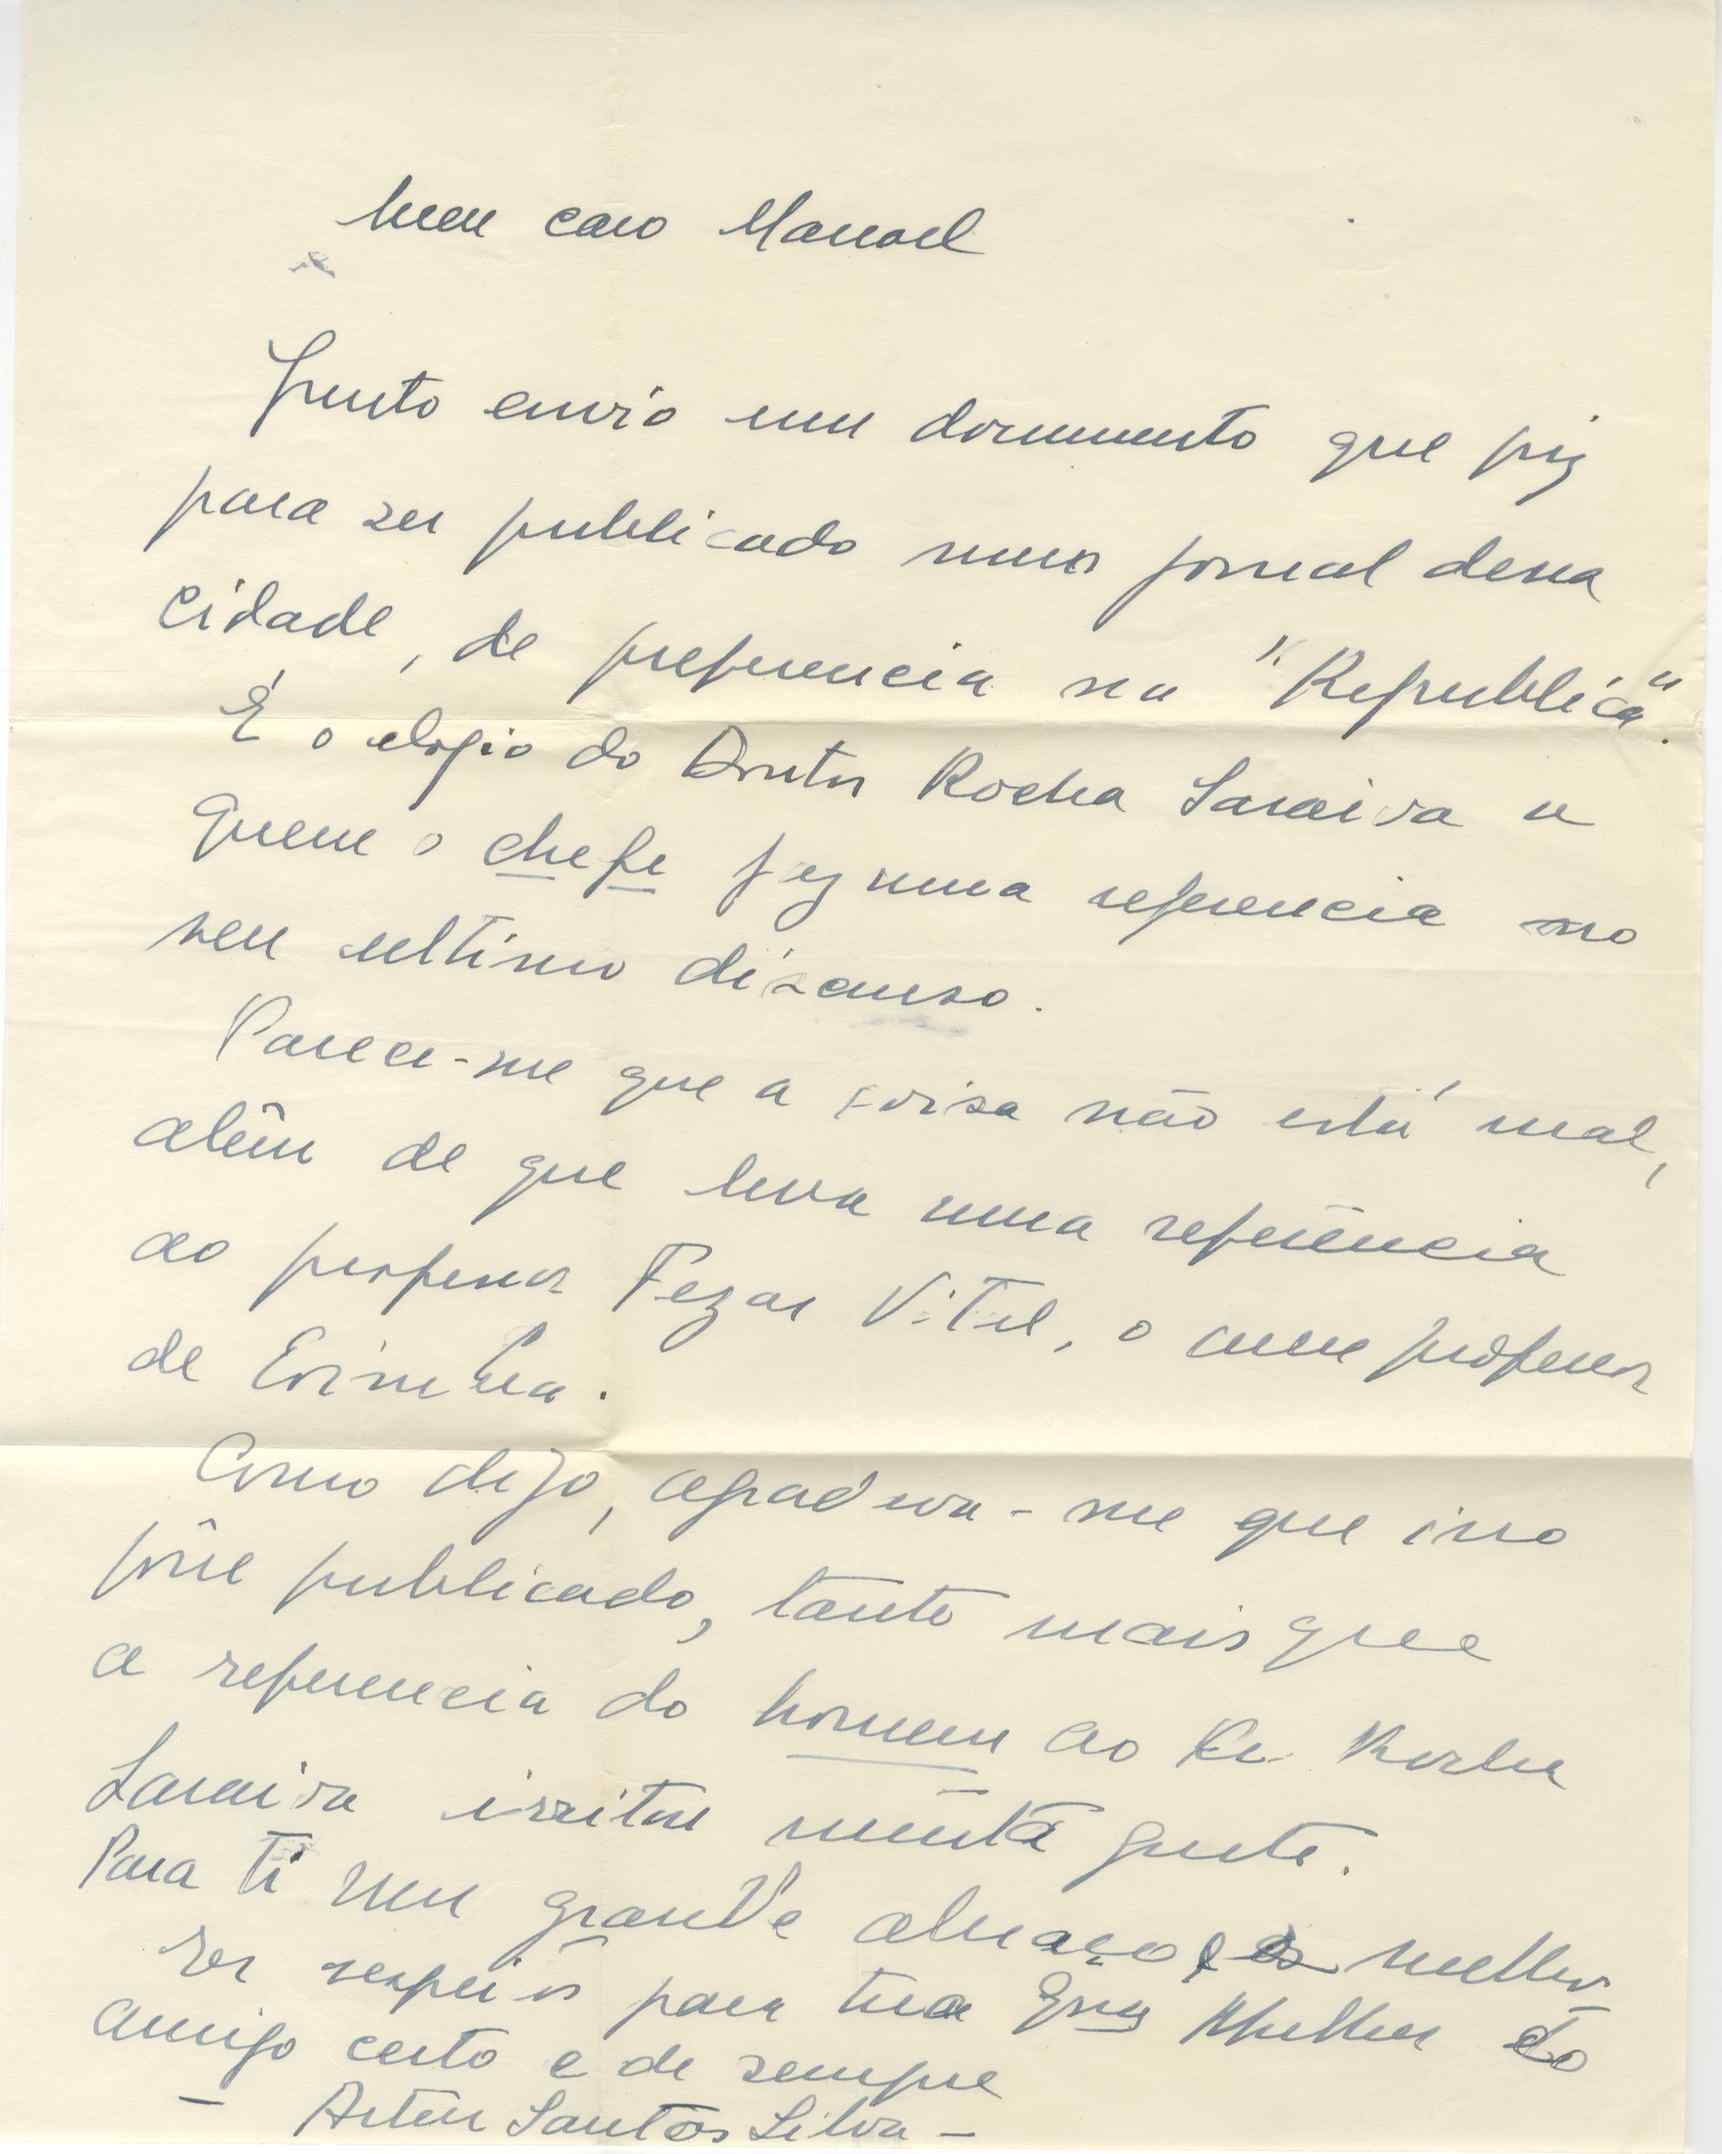 Meu caro Manoel
Junto envio um documento que fiz
para ser publicado num jornal dessa
cidade, de preferencia na "Republica".
É o elogio do Doutor Rocha Saraiva a
quem o chefe fez uma referencia no
seu ultimo discurso.
Parece-me que a coisa não está mal,
alêm de que leva uma referência
ao professor Fezas Vital, o meu professor
de Coimbra.
Como digo, agradava-me que isso
fôsse publicado, tanto mais que
a referencia do homem ao Dr. Rocha
Saraiva irritou muita gente.
Para ti um grande abraço, e os melho-
res respeitos para tua Exma Mulher do
amigo certo e de sempre
- Artur Santos Silva -